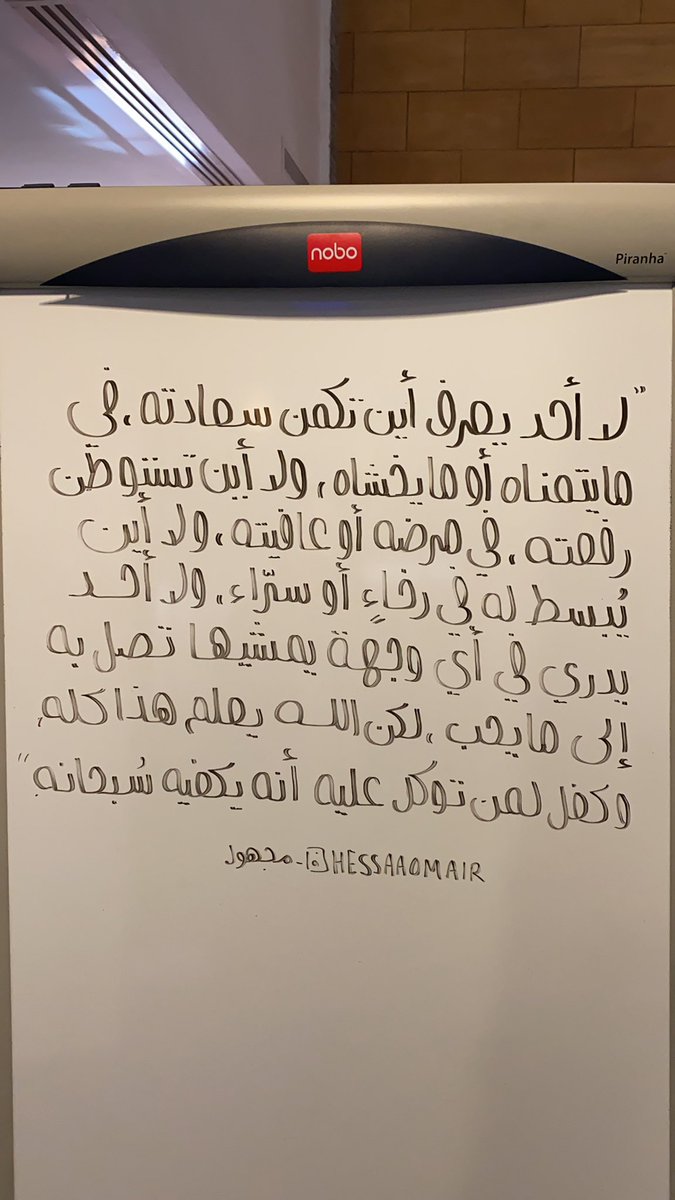 nobo
Piranha
"لا أحد يعرف أين تكمن سعادته، في
ما يتمناه أو ما يخشاه، ولا أين تستوطن
رفعته، في مرضه أو عافيته، ولا أين
يُبسط له في رخاءٍ أو سرّاء، ولا أحد
يدري في أيّ وجهة يمشيها تصل به
إلى ما يحب، لكن الله يعلم هذا كله،
وكفل لمن توكل عليه أنه يكفيه سُبحانه"
HESSAAOMAIR - مجهول